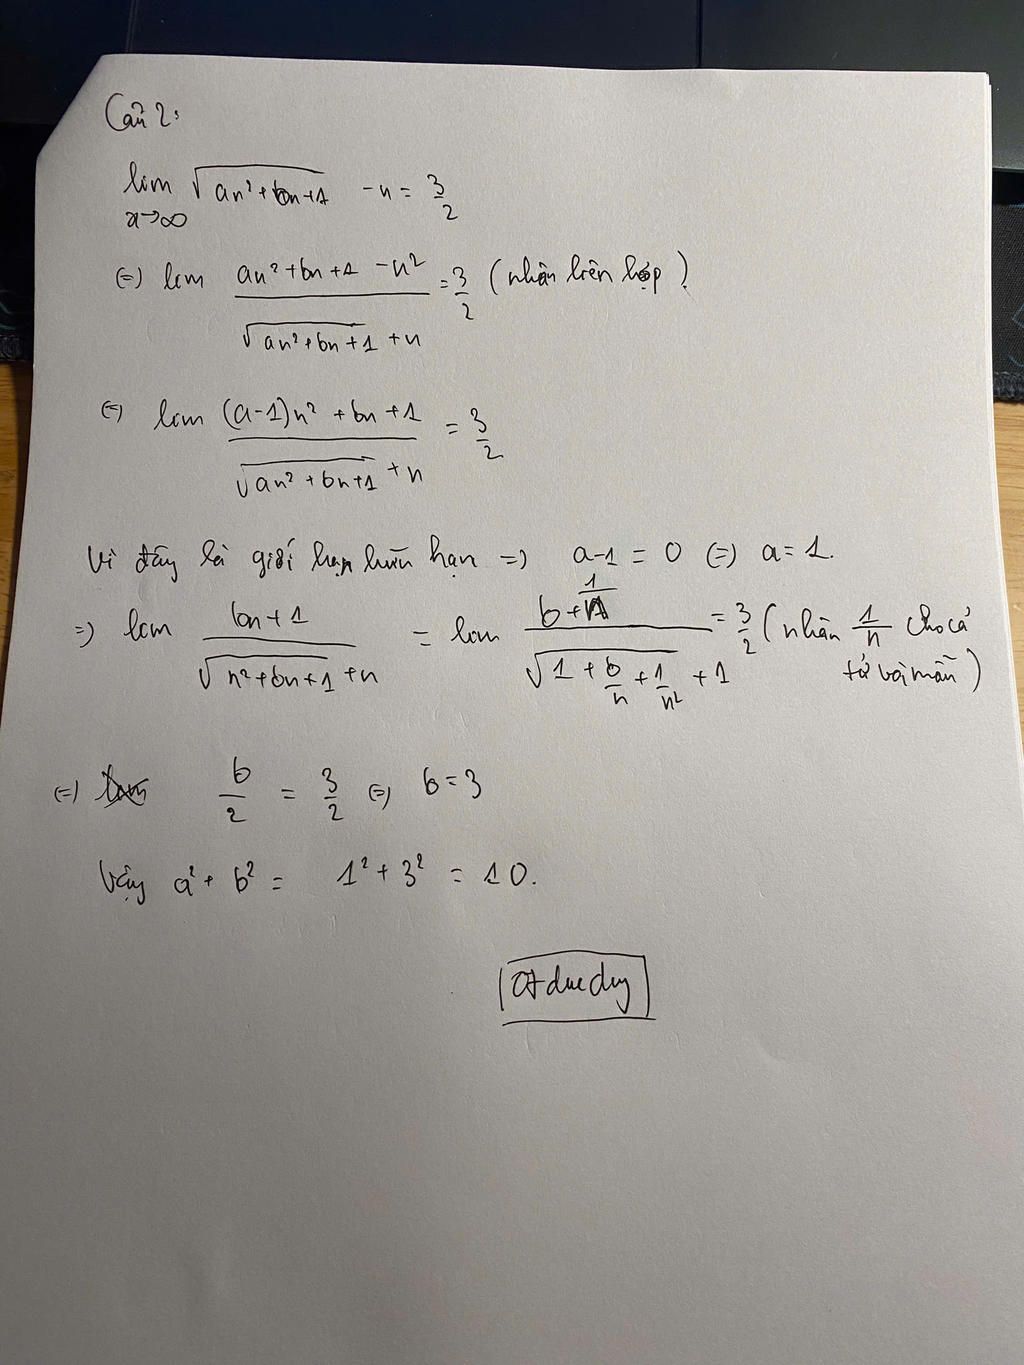 Câu 2:
lim √(an²+bn+1) -n = 3/2
x→∞
(=) lim (an²+bn+1-n²)/(√(an²+bn+1)+n) = 3/2 (nhân liên hợp)
(=) lim ((a-1)n²+bn+1)/(√(an²+bn+1)+n) = 3/2
Vì đây là giới hạn hữu hạn => a-1 = 0 (=) a=1.
=) lim (bn+1)/(√(n²+bn+1)+n) = lim (b+1/n)/(√(1+b/n+1/n²)+1) = 3/2 (nhân 1/n cho cả
tử và mẫu)
(=) b/2 = 3/2 (=) b=3
Vậy a²+b² = 1²+3² = 10.